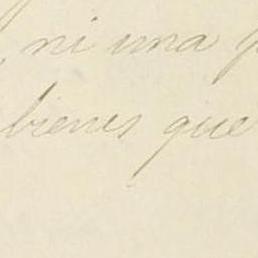 , ni una
bienes que